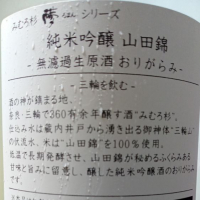 みむろ杉 ろまん シリーズ
純米吟醸 山田錦
- 無濾過生原酒 おりがらみ -
- 三輪を飲む -
酒の神が鎮まる地。
奈良・三輪で360有余年醸す酒“みむろ杉”。
仕込み水は蔵内井戸から湧き出る御神体“三輪山”
の伏流水。米は“山田錦”を100%使用。
低温で長期発酵させ、山田錦が秘めるふくらみある
甘味と旨みに留意し、醸した純米吟醸酒のおりがらみ